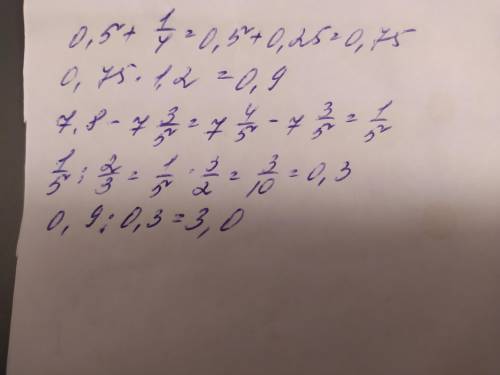 0,5 + 1/4 = 0,5 + 0,25 = 0,75
0,75 · 1,2 = 0,9
7,8 - 7 3/5 = 7 4/5 - 7 3/5 = 1/5
1/5 : 2/3 = 1/5 · 3/2 = 3/10 = 0,3
0,9 : 0,3 = 3,0